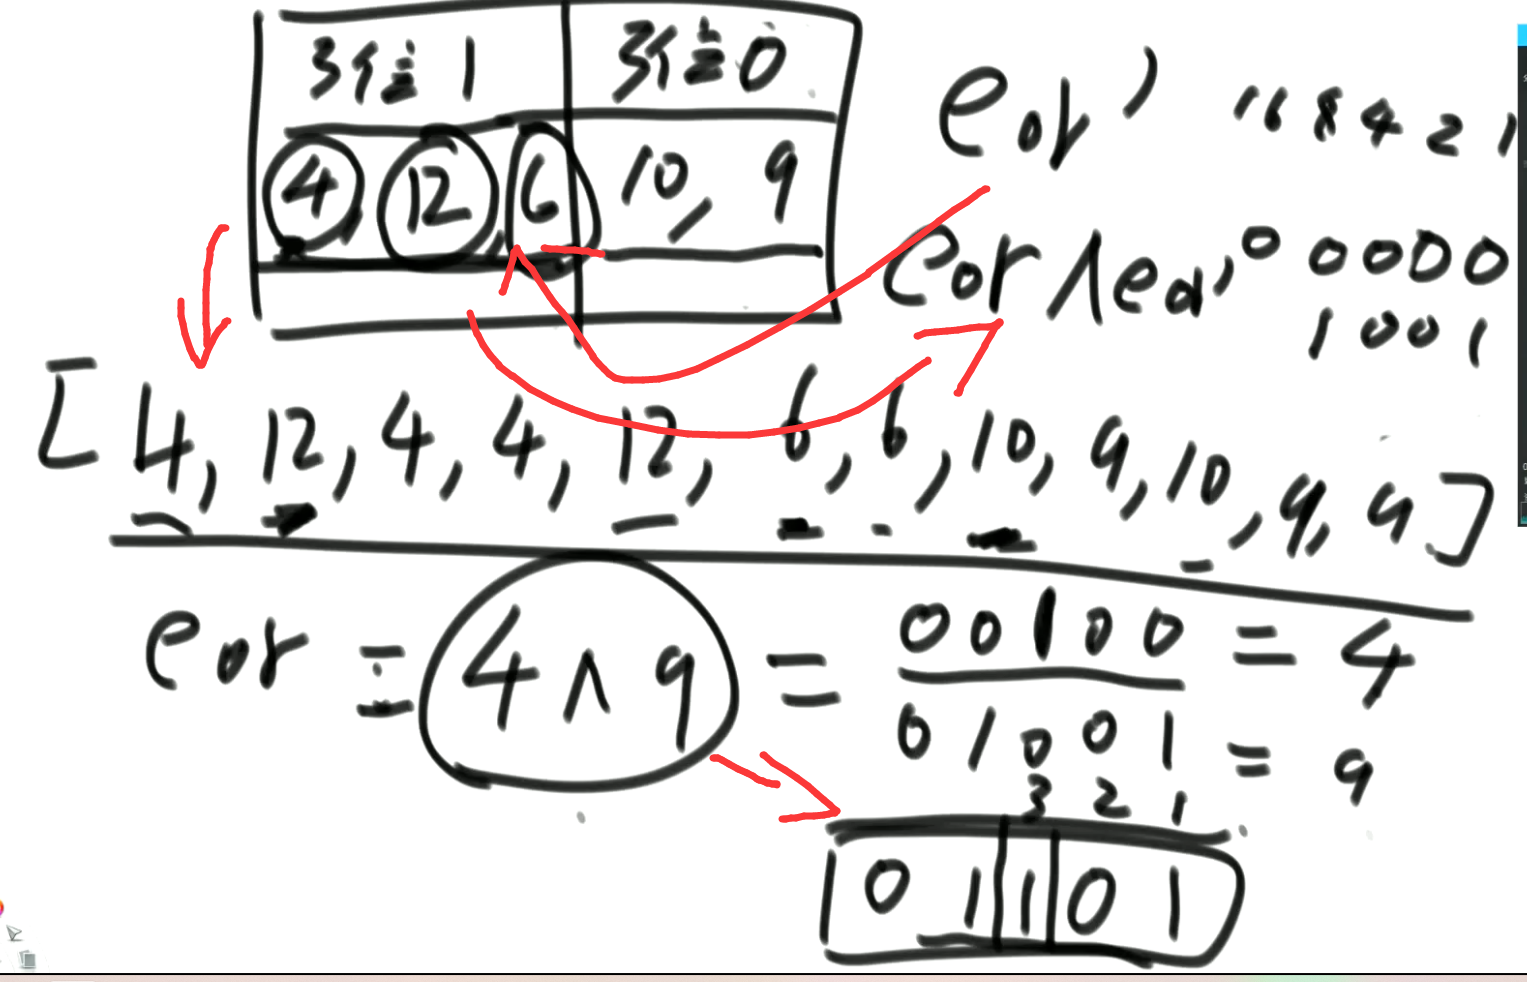 3位是1 3位是0
4, 12, 6 10, 9
eor' 16 8 4 2 1
eor∧eor' 0 0 0 0 0
1 0 0 1
[4, 12, 4, 4, 12, 6, 6, 10, 9, 10, 9, 9]
eor = 4 ∧ 9 = 0 0 1 0 0 = 4
0 1 0 0 1 = 9
3 2 1
0 1 1 0 1